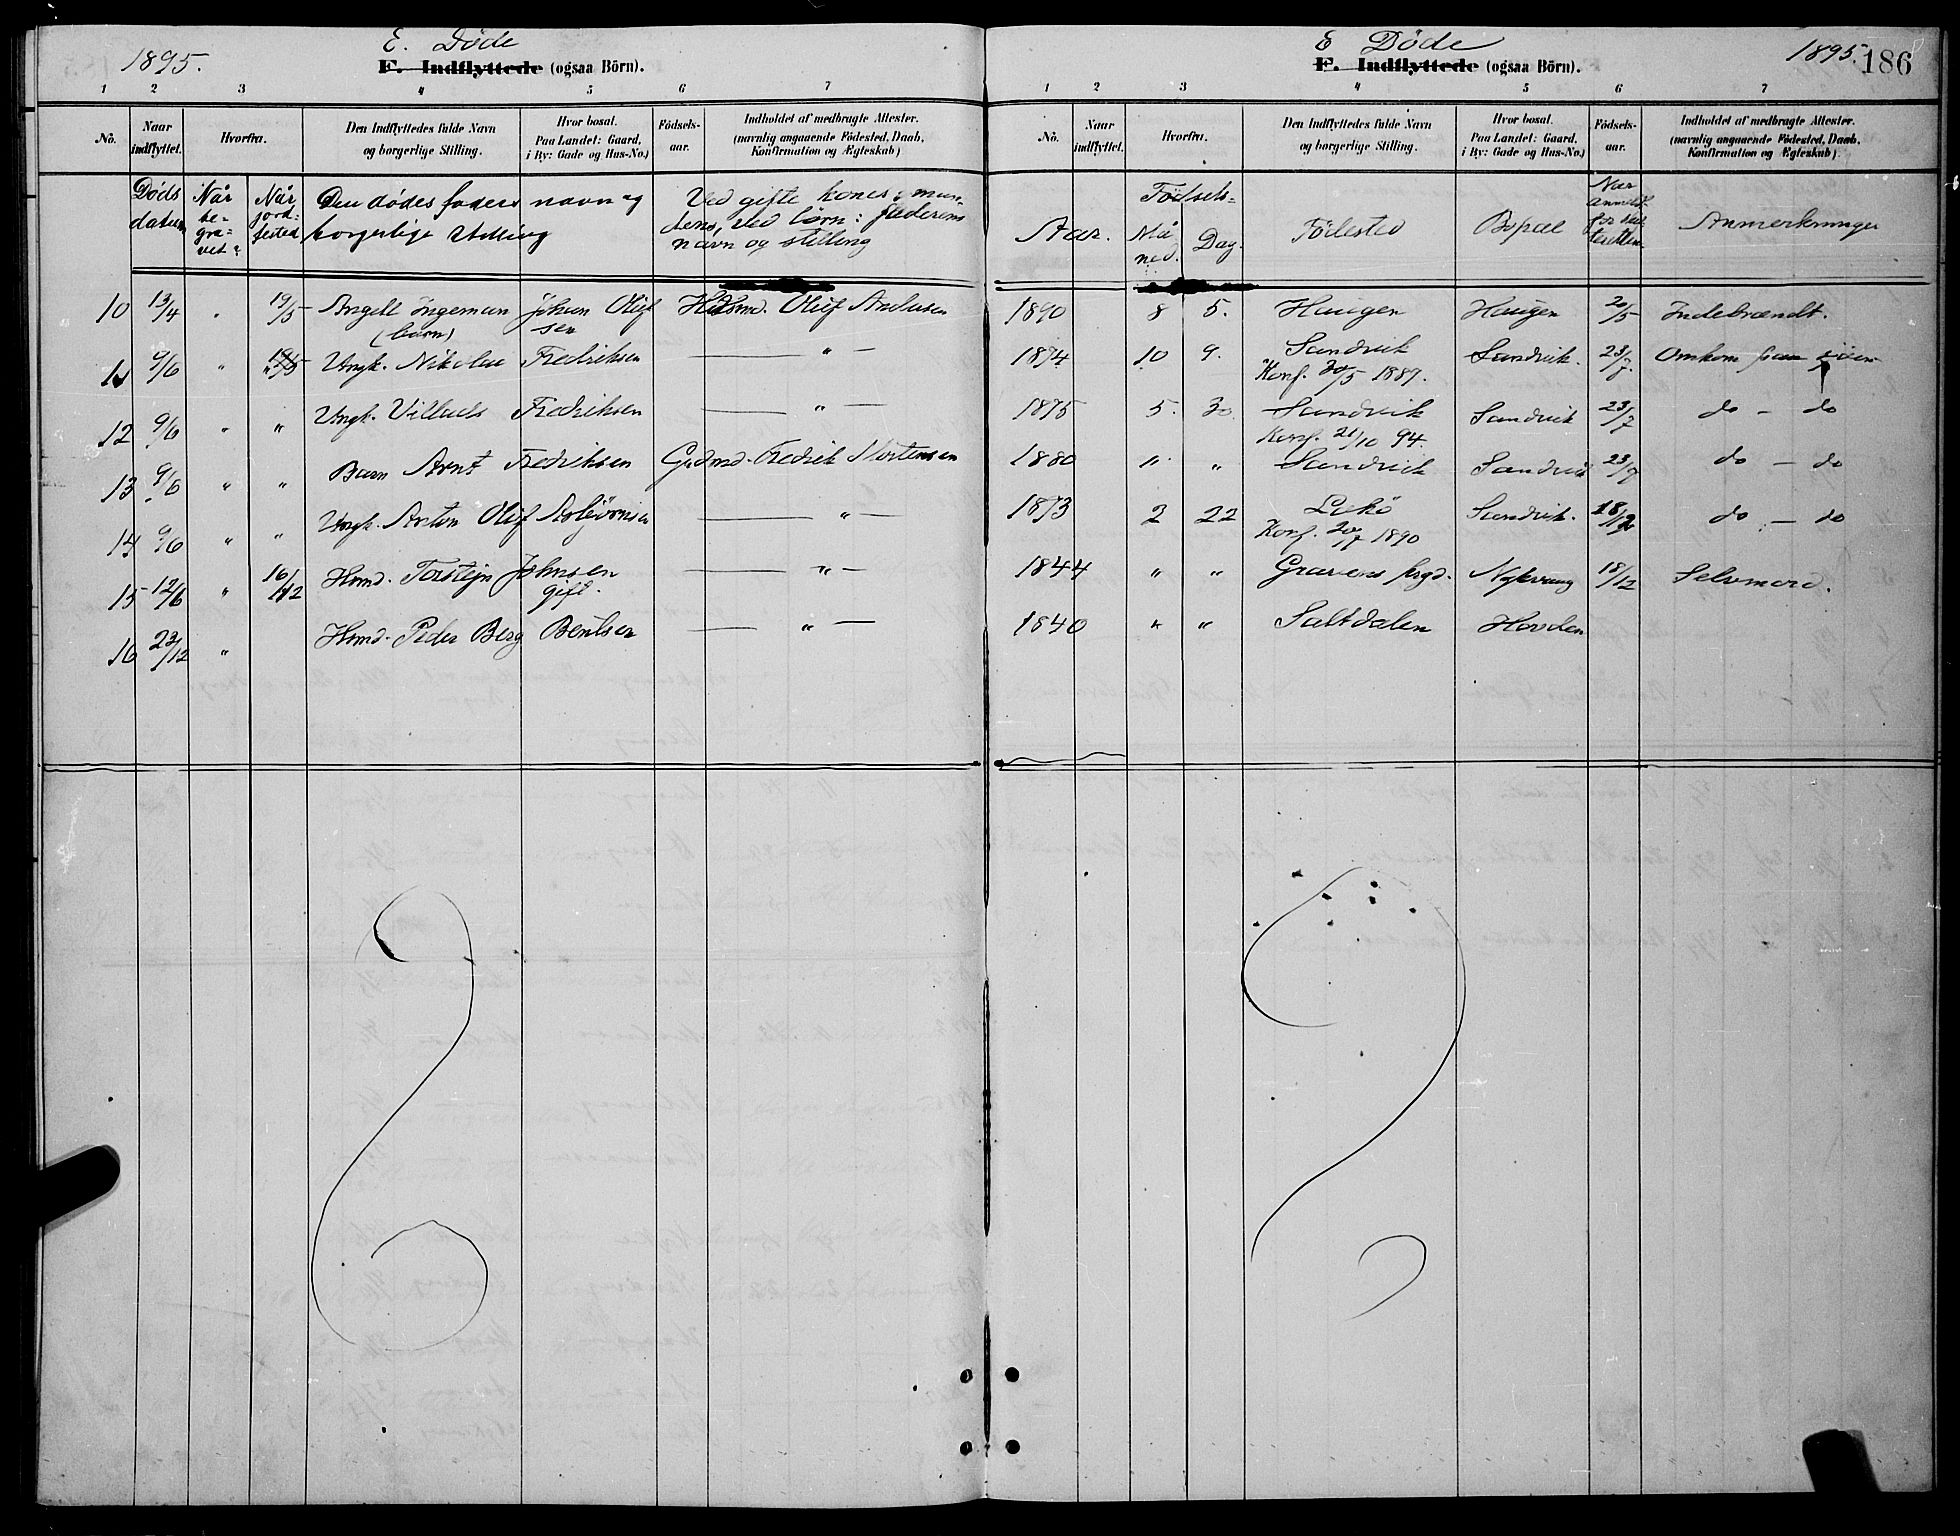 1895.
E. Døde
F. Indflyttede (ogsaa Börn).
1 2 3 4 5 6 7
No.
Naar indflyttet.
Hvorfra.
Den Indflyttedes fulde Navn og borgerlige Stilling.
Hvor bosat. Paa Landet: Gaard, i By: Gade og Hus-No.)
Fødsels-aar.
Indholdet af medbragte Attester. (navnlig angaaende Fødested, Daab, Konfirmation og Ægteskab)
Døds datum
Når be-gra-vet?
Når jord-fested
Den dødes navn og borgerlige stilling
Ved gifte koner: mandens, ved børn: faderens navn og stilling
10 13/4 " 19/5 Angell Ingeman Johan Oluf sen Husmd. Oluf
(barn)
11 9/6 " Ungk. Nikolai Fredriksen — " —
12 9/6 " " Ungk. Villads Fredriksen — " —
13 9/6 " " Barn Arnt Fredriksen Gmd. Fredrik Mortensen
14 9/6 " " Ungk. Anton Oluf Asbjørnsen — " —
15 12/6 " 16/12 Hmd. Torstejn Johnsen — " —
gift.
16 23/12 " Hmd. Peder Berg Bentsen — " —
E Døde
1895.
186
F. Indflyttede (ogsaa Börn).
1 2 3 4 5 6 7
No.
Naar indflyttet.
Hvorfra.
Den Indflyttedes fulde Navn og borgerlige Stilling.
Hvor bosat. Paa Landet: Gaard, i By: Gade og Hus-No.)
Fødsels-aar.
Indholdet af medbragte Attester. (navnlig angaaende Fødested, Daab, Konfirmation og Ægteskab)
Fødsels-
Aar.
Må ned.
Dag.
Fødested
Bopæl
Når anmeldt for skifteretten
Anmerkninger
1890 8 5. Haugen Haugen 20/5 Indebrændt.
1874 10 9. Sandvik Sandvik 23/7. Omkom paa sjøen
Konf. 20/5 1889.
1875 5. 30 Sandvik Sandvik 23/7 do — do
Konf. 21/10 94.
1880 " " Sandvik Sandvik 23/7 do — do
1873 2 22 Lekø Sandvik. 18/12 do — do
Konf. 20/7 1890
1844 " " Gravens prgd. Nykvaag 18/12 Selvmord.
1840 " " Saltdalen Hovden